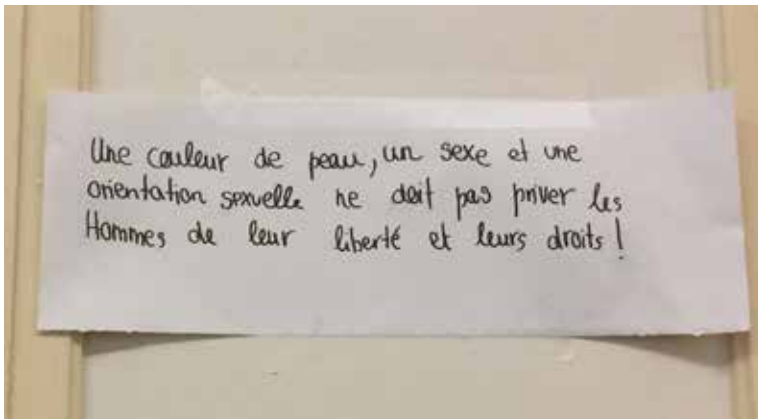 Une couleur de peau, un sexe et une
orientation sexuelle ne doit pas priver les
Hommes de leur liberté et leurs droits !